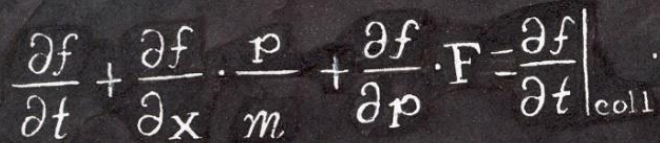 ∂f/∂t + ∂f/∂x · p/m + ∂f/∂p · F = ∂f/∂t|coll .